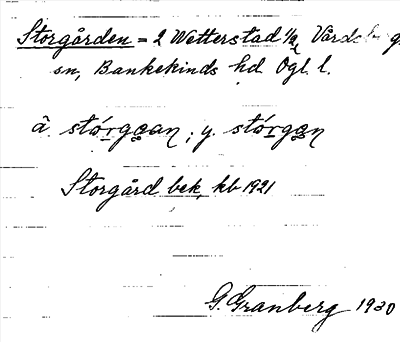 Storgården = 2 Wetterstad 1/2, Vårdsbergs
sn, Bankekinds hd Ögl. l.
â. stórgɷan; y. stórgɷn
Storgård bek. kb 1921
G. Granberg 1930